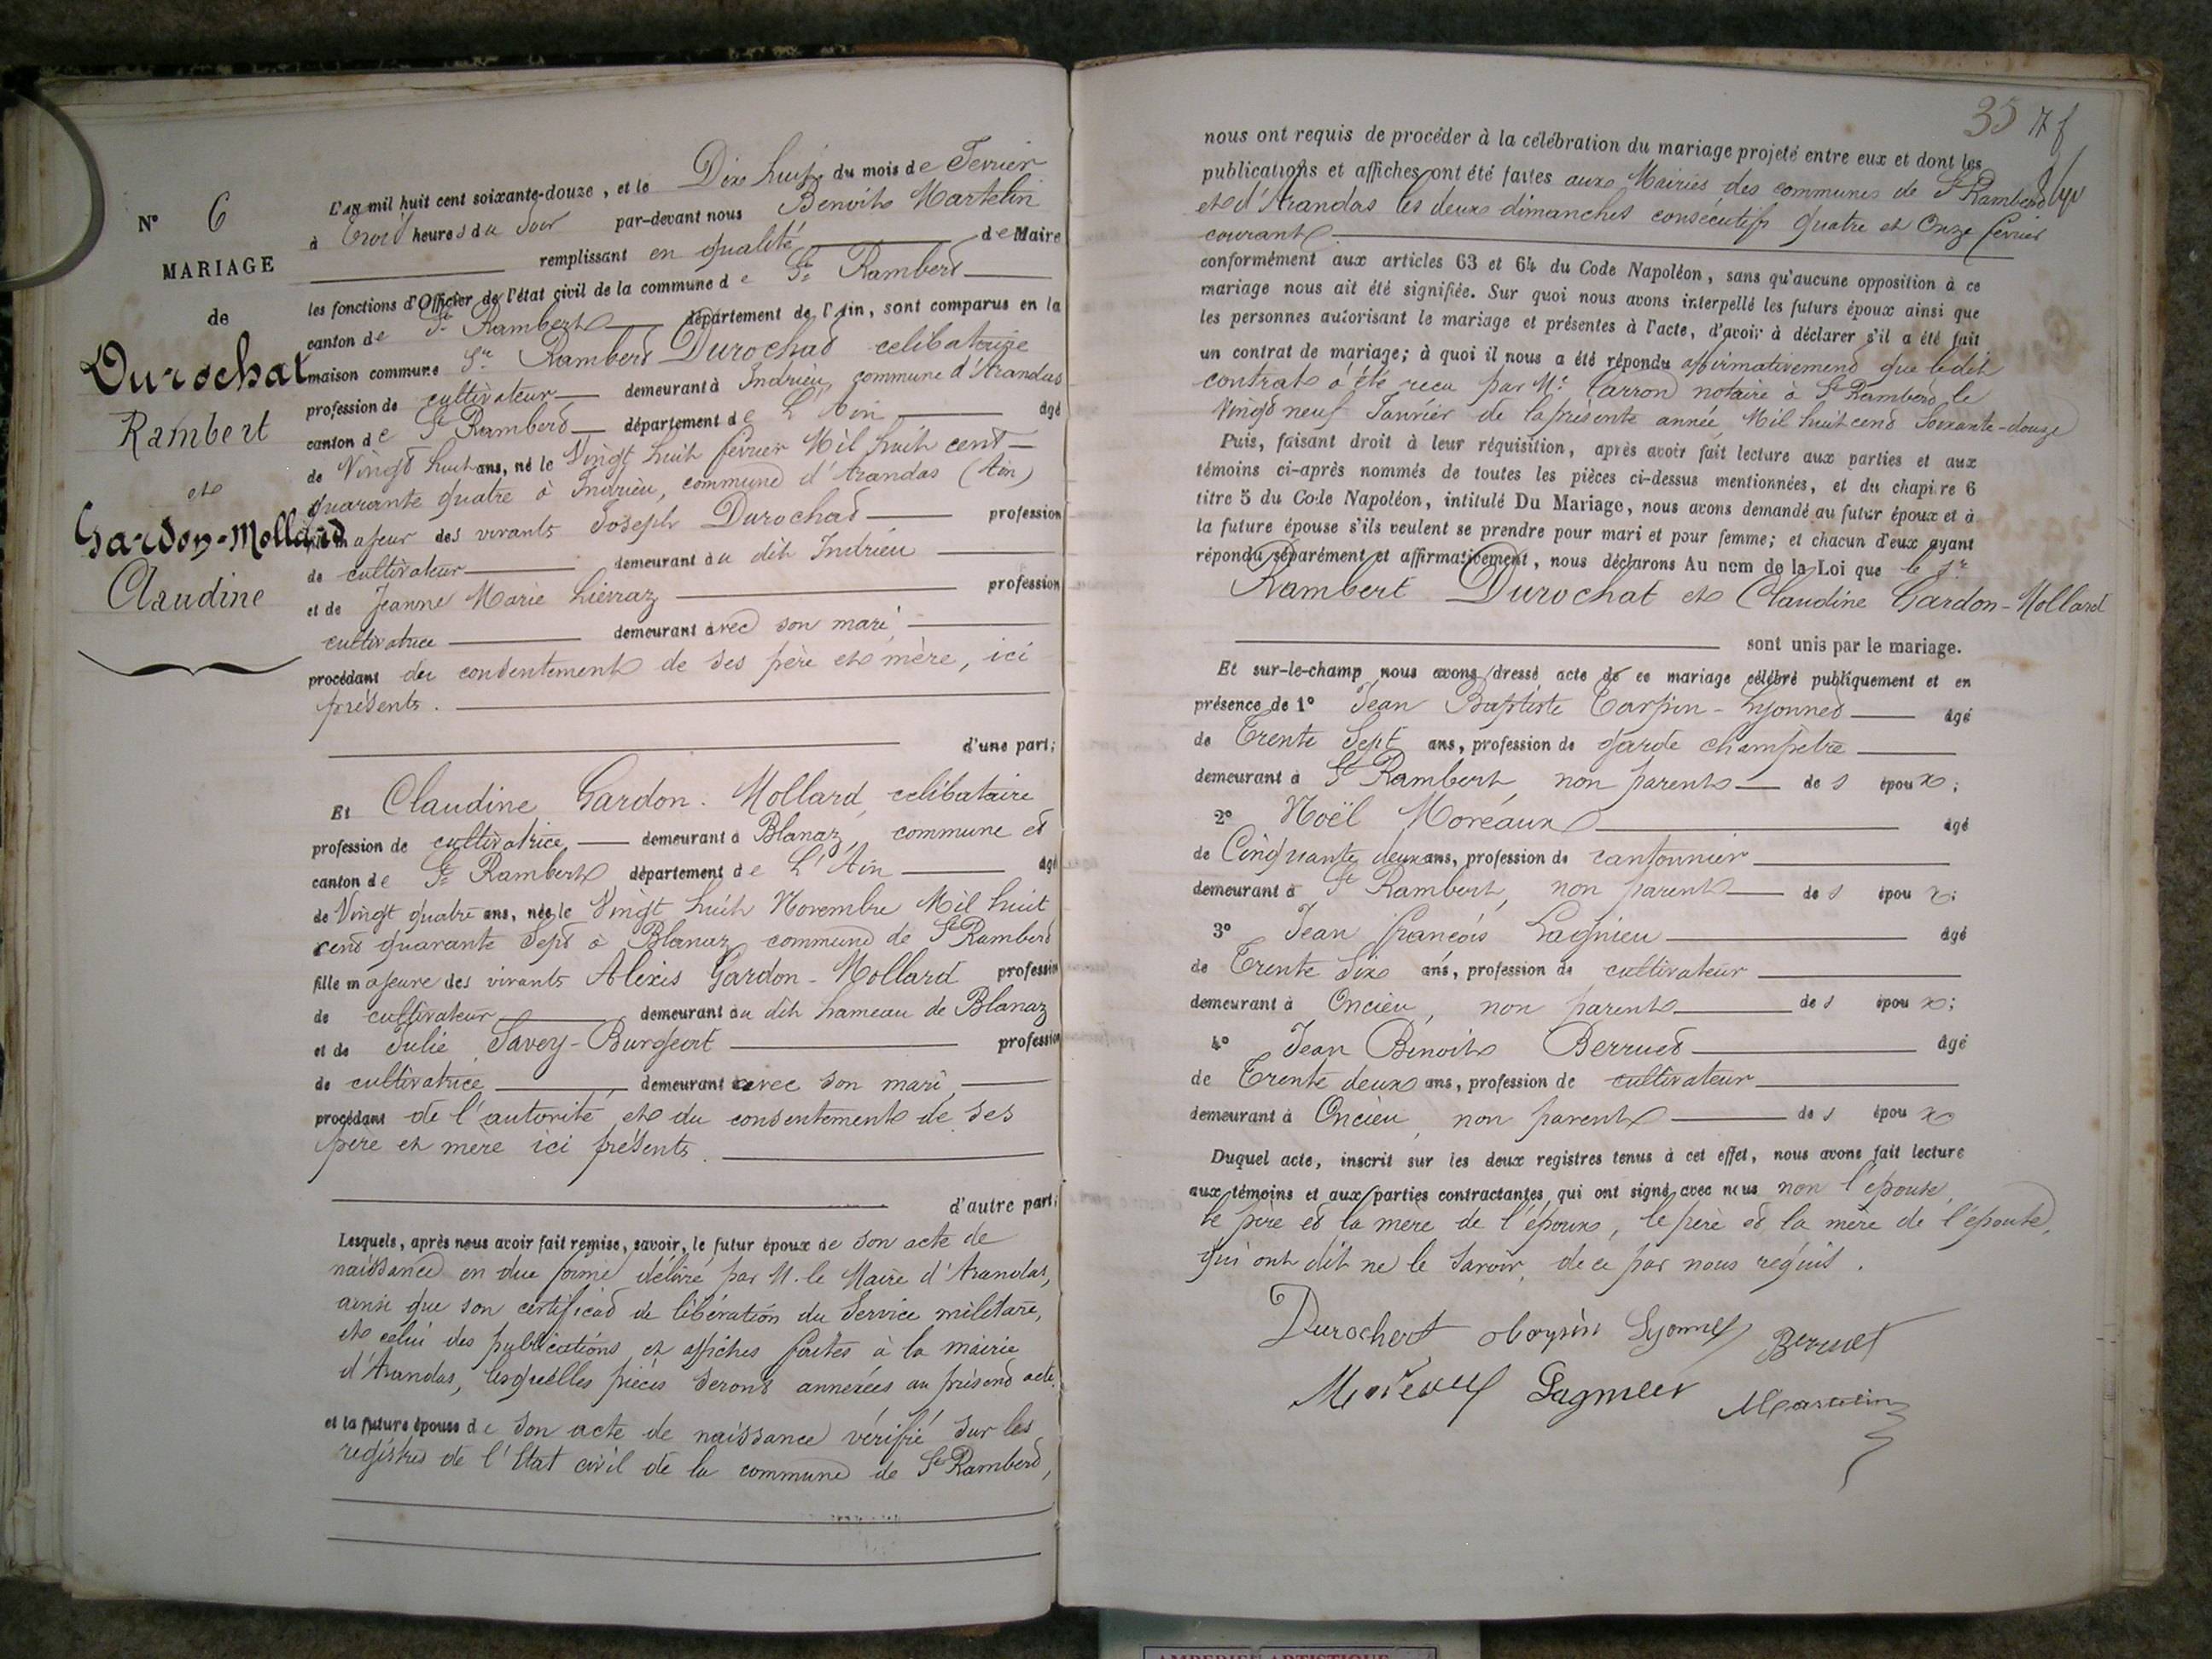 N° 6
MARIAGE
de
Durochat
Rambert
et
Gardon-Mollard
Claudine
L'an mil huit cent soixante-douze, et le Dix huit du mois de Fevrier
à Trois heures du Soir par-devant nous Benoit Martelin
remplissant en qualité de Maire
les fonctions d'Officier de l'état civil de la commune de St Rambert
canton de St Rambert département de l'Ain, sont comparus en la
maison commune Sr Rambert Durochat celibataire
profession de cultivateur demeurant à Indrieu, commune d'Arandas
canton de St Rambert département de L'Ain âgé
de Vingt huit ans, né le Vingt huit fevrier Mil huit cent
quarante quatre à Indrieu, commune d'Arandas (Ain)
majeur des vivants Joseph Durochat profession
de cultivateur demeurant au dit Indrieu
et de Jeanne Marie Liévraz profession
cultivatrice demeurant avec son mari,
procédant du consentement de ses père et mère, ici
présents.
d'une part;
Et Claudine Gardon-Mollard, celibataire
profession de cultivatrice demeurant à Blanaz, commune et
canton de St Rambert département de L'Ain âgé
de Vingt quatre ans, née le Vingt huit Novembre Mil huit
cent quarante Sept à Blanaz commune de St Rambert
fille majeure des vivants Alexis Gardon-Mollard profession
de cultivateur demeurant au dit hameau de Blanaz
et de Julie Savey-Burgeort profession
de cultivatrice demeurant avec son mari,
procédant de l'autorité et du consentement de ses
père et mere ici présents.
d'autre part;
Lesquels, après nous avoir fait remise, savoir, le futur époux de son acte de
naissance en due forme délivré par M. le Maire d'Arandas,
ainsi que son certificat de libération du Service militaire,
et celui des publications et affiches faites à la mairie
d'Arandas, lesquelles pièces seront annexées au présent acte.
et la future épouse de son acte de naissance vérifié sur les
registres de l'Etat civil de la commune de St Rambert,
35
nous ont requis de procéder à la célébration du mariage projeté entre eux et dont les
publications et affiches ont été faites aux Mairies des communes de St Rambert
et d'Arandas les deux dimanches consécutifs quatre et Onze fevrier
courant
conformément aux articles 63 et 64 du Code Napoléon, sans qu'aucune opposition à ce
mariage nous ait été signifiée. Sur quoi nous avons interpellé les futurs époux ainsi que
les personnes autorisant le mariage et présentes à l'acte, d'avoir à déclarer s'il a été fait
un contrat de mariage; à quoi il nous a été répondu affirmativement que ledit
contrat a été recu par Me Carron notaire à St Rambert, le
Vingt neuf Janvier de la presente année Mil huit cent Soixante-douze
Puis, faisant droit à leur réquisition, après avoir fait lecture aux parties et aux
témoins ci-après nommés de toutes les pièces ci-dessus mentionnées, et du chapitre 6
titre 5 du Code Napoléon, intitulé Du Mariage, nous avons demandé au futur époux et à
la future épouse s'ils veulent se prendre pour mari et pour femme; et chacun d'eux ayant
répondu séparément et affirmativement, nous déclarons Au nom de la Loi que le Sr
Rambert Durochat et Claudine Gardon-Mollard
sont unis par le mariage.
Et sur-le-champ nous avons dressé acte de ce mariage célébré publiquement et en
présence de 1° Jean Baptiste Tarpin-Lyonnet âgé
de Trente Sept ans, profession de garde champetre
demeurant à St Rambert, non parent des époux;
2° Noël Moréaux âgé
de Cinquante deux ans, profession de cantonnier
demeurant à St Rambert, non parent des époux;
3° Jean françois Lagnieu âgé
de Trente Six ans, profession de cultivateur
demeurant à Oncieu, non parent des époux;
4° Jean Benoit Berruet âgé
de Trente deux ans, profession de cultivateur
demeurant à Oncieu, non parent des époux
Duquel acte, inscrit sur les deux registres tenus à cet effet, nous avons fait lecture
aux témoins et aux parties contractantes qui ont signé avec nous non l'épouse,
le père et la mère de l'époux, le père et la mère de l'épouse,
qui ont dit ne le savoir, de ce par nous requis.
Durochat Lyonnet Berruet
Moréaux Lagnieu Martelin
AMBERIEU ARTISTIQUE